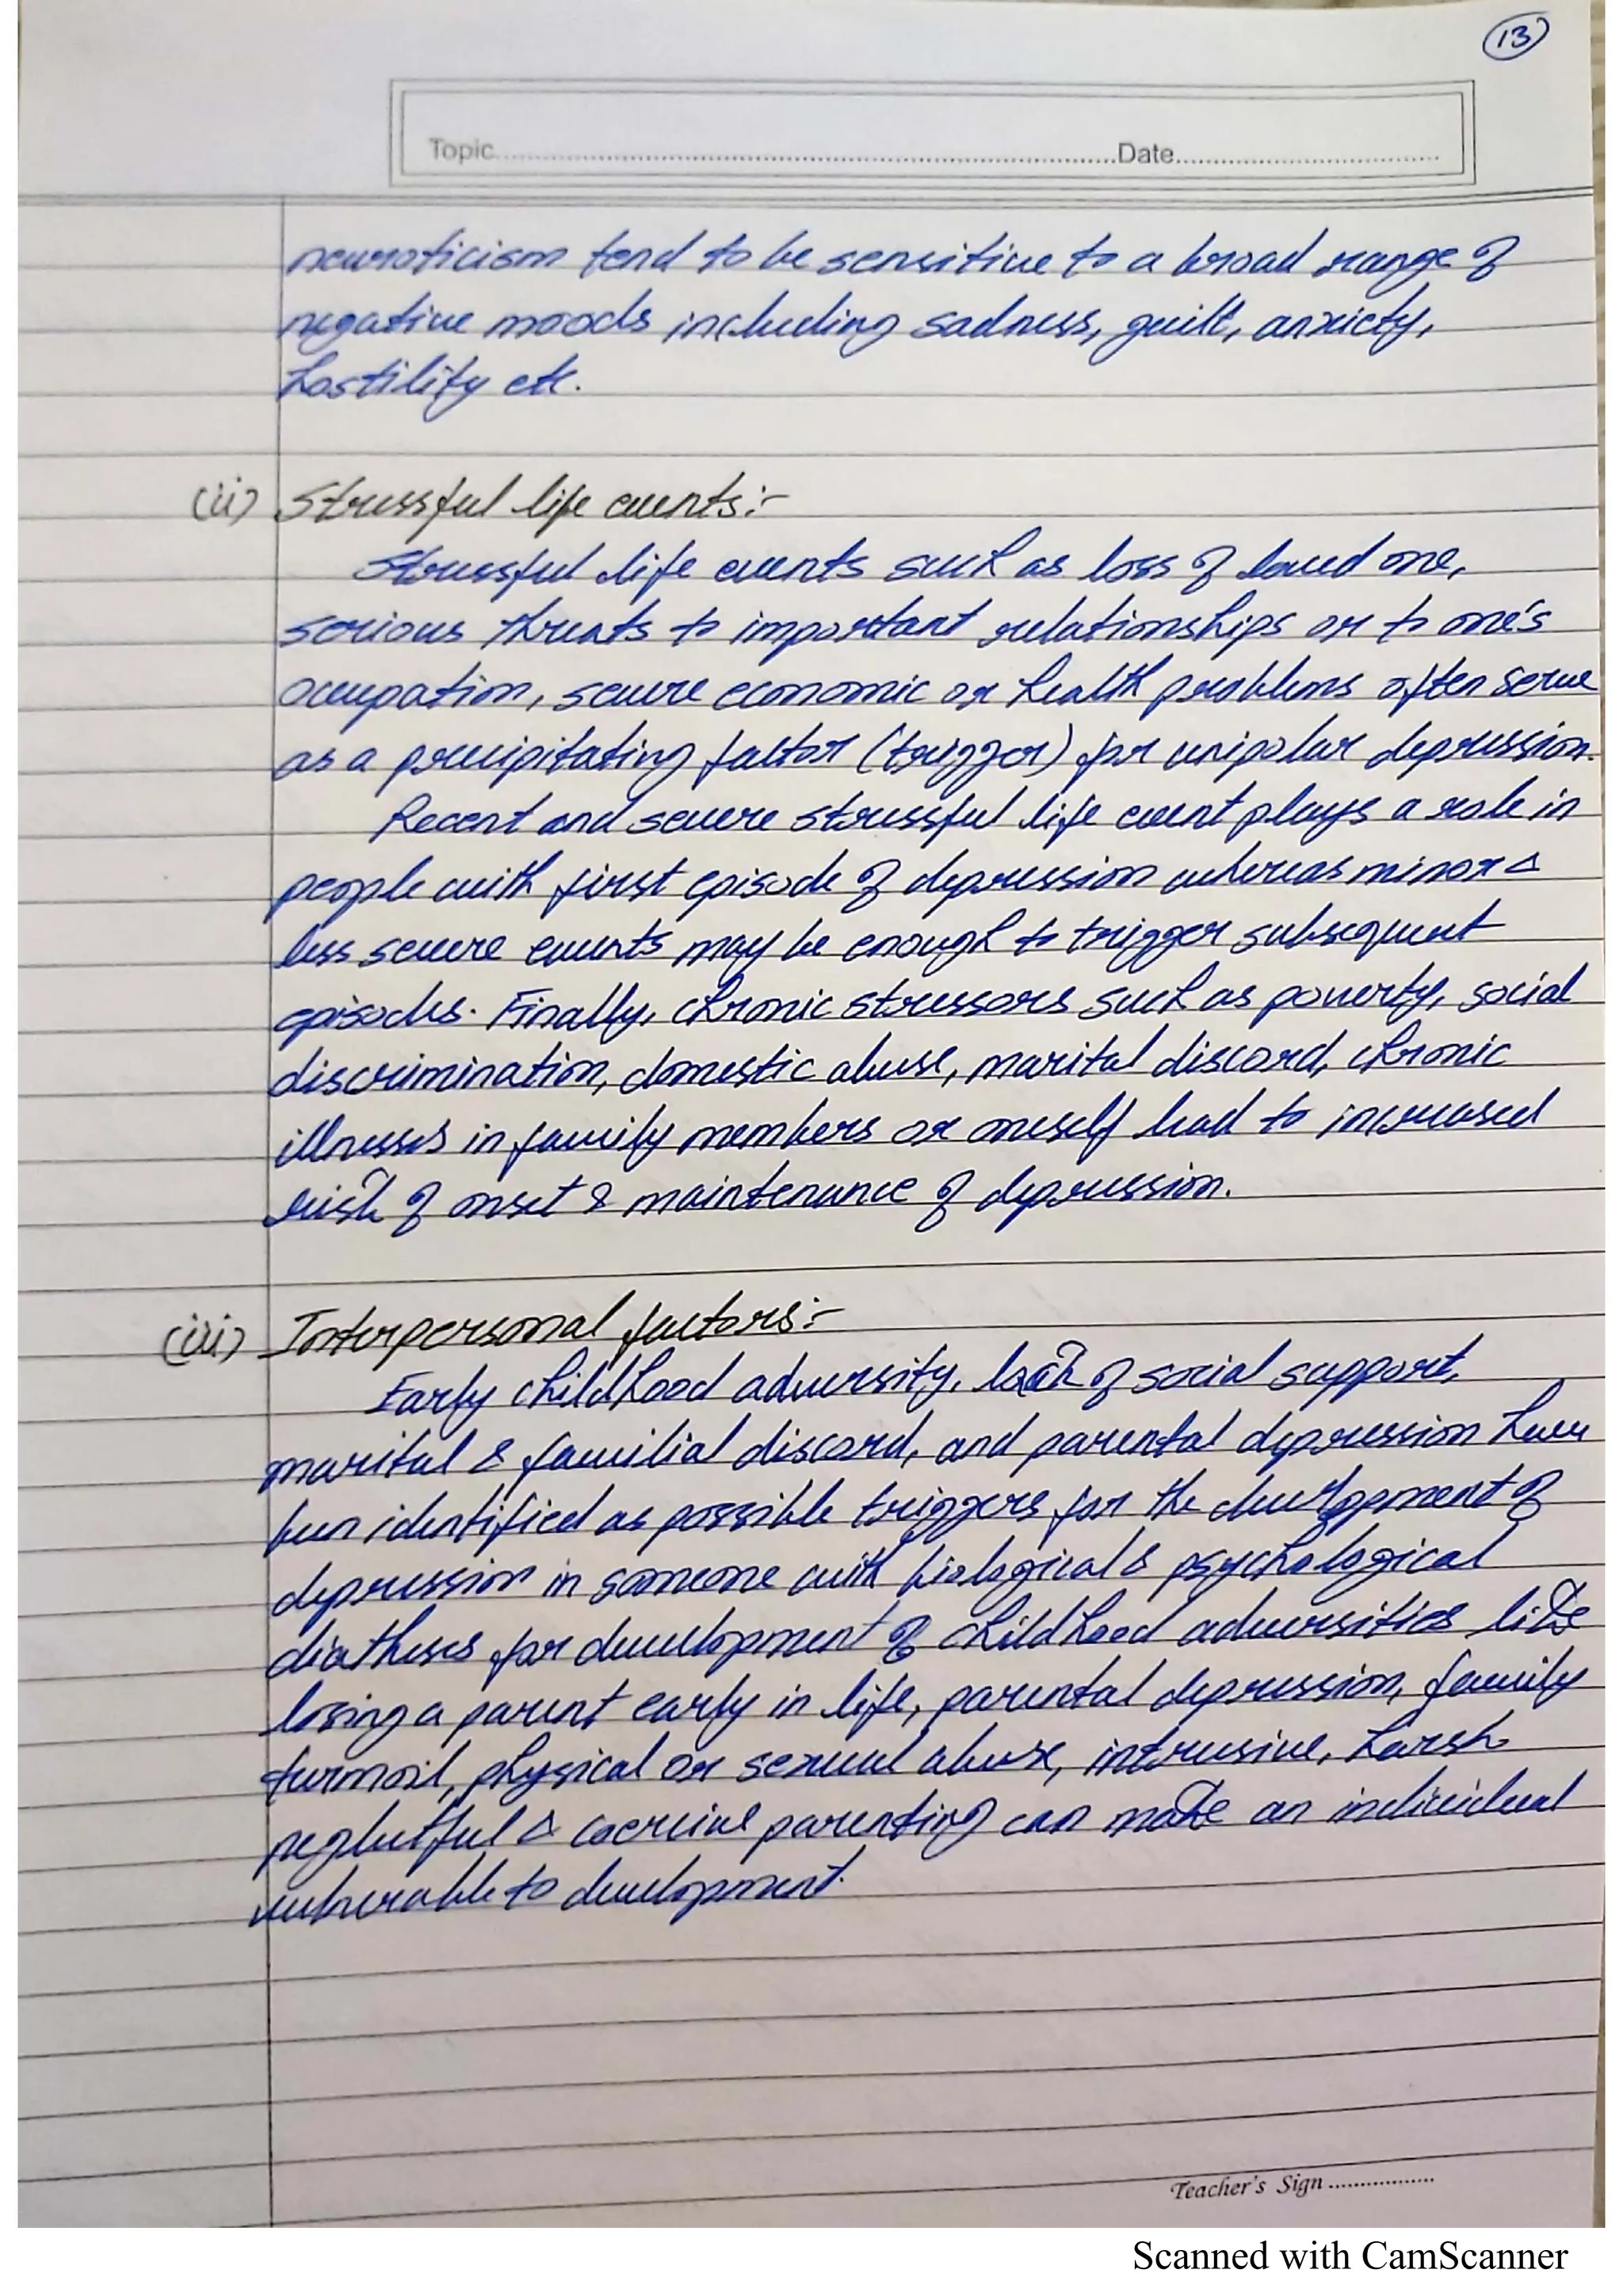 13
Topic..........Date..........
neuroticism tend to be sensitive to a broad range of
negative moods including sadness, guilt, anxiety,
hostility etc.
(ii) Stressful life events:-
Stressful life events such as loss of loved one,
serious threats to important relationships or to one's
occupation, severe economic or health problems often serve
as a precipitating factor (trigger) for unipolar depression.
Recent and severe stressful life event plays a role in
people with first episode of depression whereas minor &
less severe events may be enough to trigger subsequent
episodes. Finally, chronic stressors such as poverty, social
discrimination, domestic abuse, marital discord, chronic
illnesses in family members or oneself lead to increased
risk of onset & maintenance of depression.
(iii) Interpersonal factors:-
Early childhood adversity, lack of social support,
marital & familial discord, and parental depression have
been identified as possible triggers for the development of
depression in someone with biological & psychological
diatheses for development of childhood adversities like
losing a parent early in life, parental depression, family
turmoil, physical or sexual abuse, intrusive, harsh
neglectful & coercive parenting can make an individual
vulnerable to development.
Teacher's Sign..........
Scanned with CamScanner